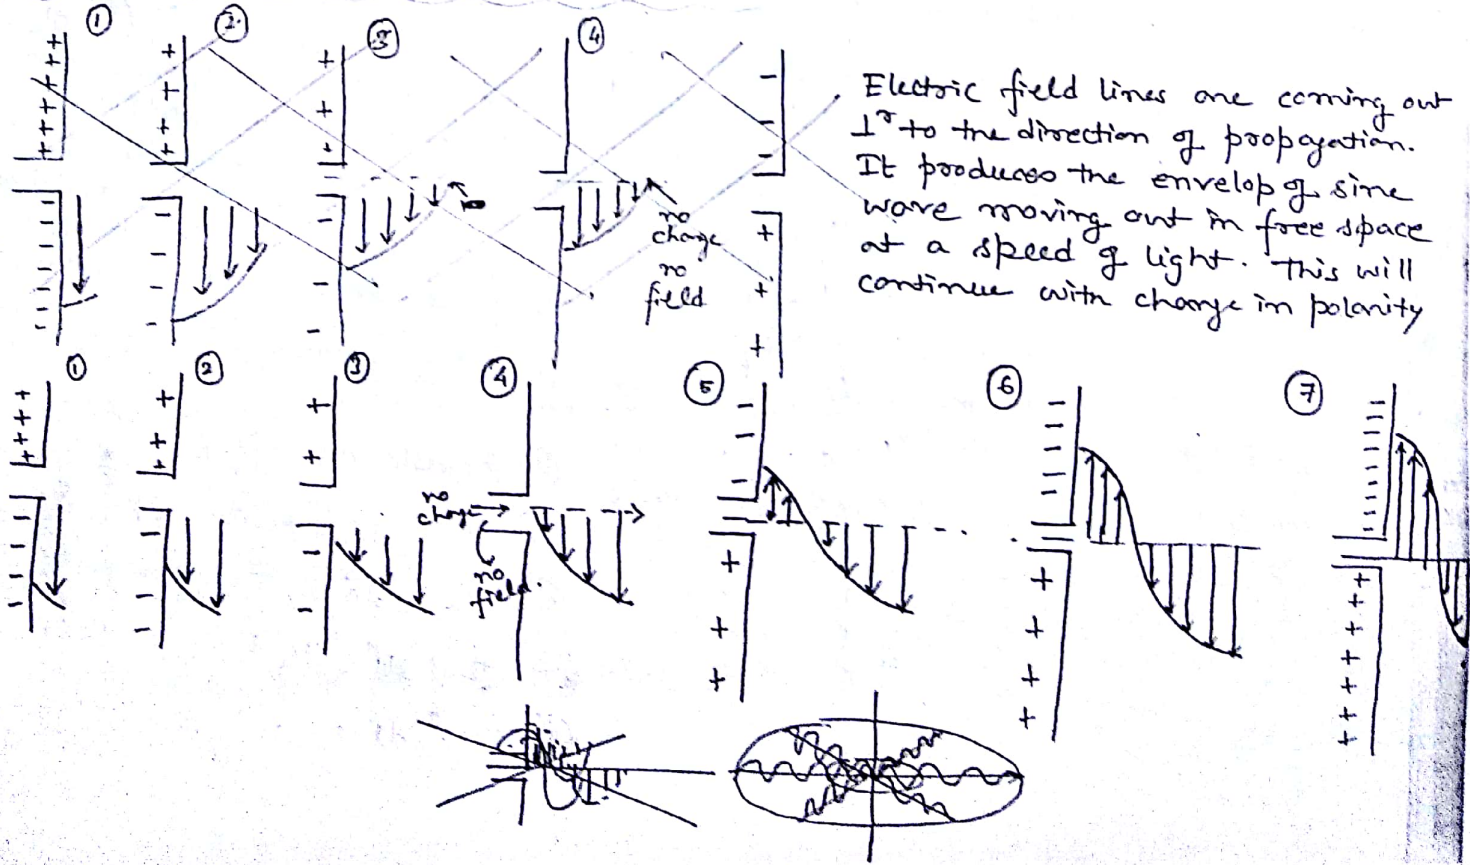 ① ② ③ ④
Electric field lines are coming out
⊥r to the direction of propagation.
It produces the envelop of sine
wave moving out in free space
at a speed of light. This will
continue with change in polarity
no
charge
no
field
① ② ③ ④ ⑤ ⑥ ⑦
no
charge
no
field.